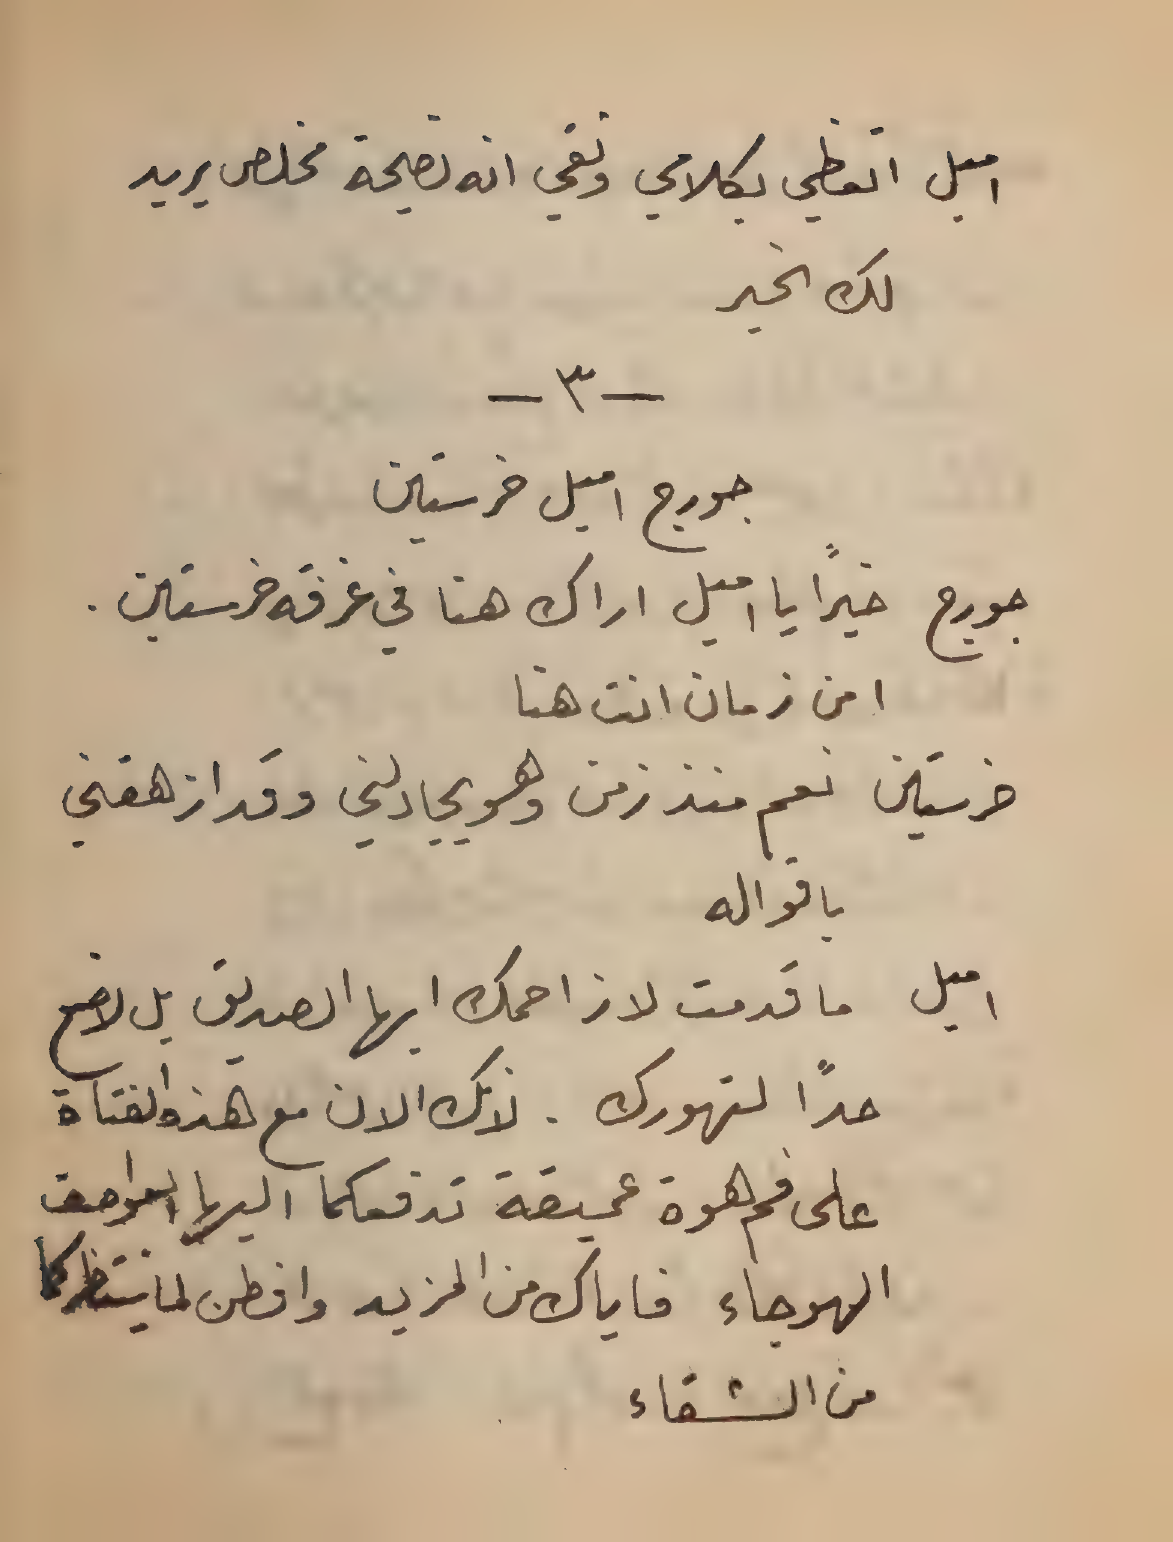 اميل اتعظي بكلامي وثقي انه نصيحة مخلص يريد
لك الخير
— ٣ —
جورج اميل خرستين
جورج خيرًا يا اميل اراك هنا في غرفة خرستين .
امن زمان انت هنا
خرستين نعم منذ زمن وهو يجادلني وقد ازهقني
باقواله
اميل ما قدمت لازاحمك ايها الصديق بل لاضع
حدًا لتهورك . لانك الان مع هذه الفتاة
على فم هوة عميقة تدفعكما اليها العواصف
الهوجاء فاياك من المزيد وافطن لما ينتظركما
من الشقاء